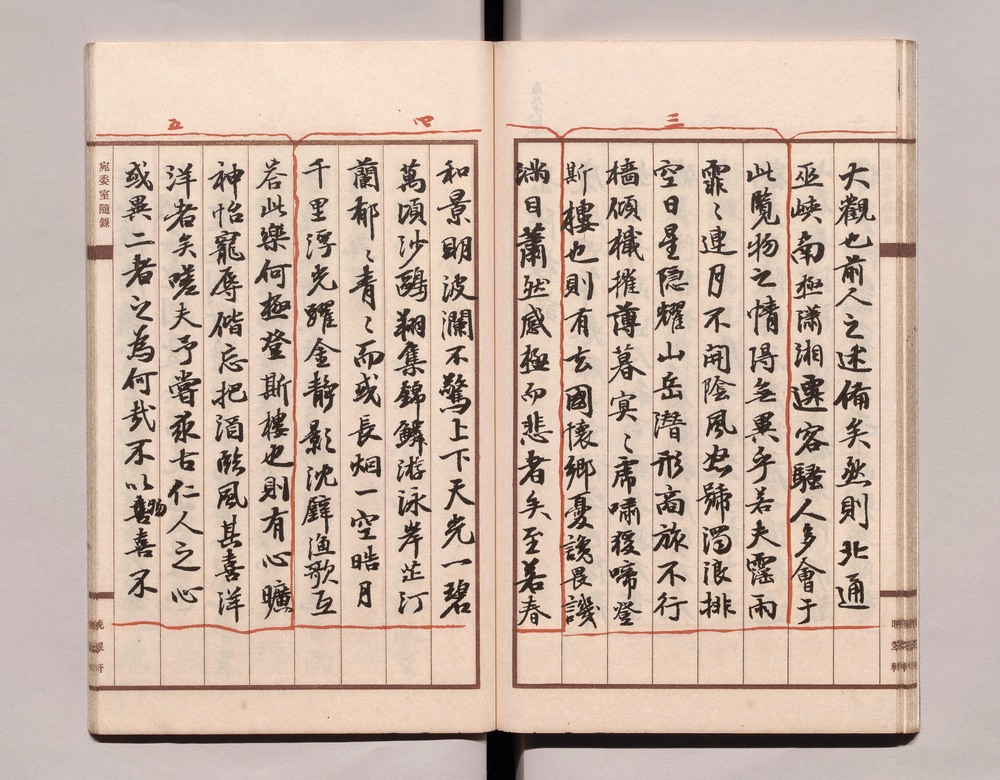 三
大觀也前人之述備矣然則北通
巫峽南極瀟湘遷客騷人多會于
此覽物之情得無異乎若夫霪雨
霏〻連月不開陰風怒號濁浪排
空日星隱耀山岳潛形商旅不行
檣傾檝摧薄暮冥〻虎嘯猨啼登
斯樓也則有去國懷鄉憂讒畏譏
滿目蕭然感極而悲者矣至若春
四
五
和景明波瀾不驚上下天光一碧
萬頃沙鷗翔集錦鱗游泳岸芷汀
蘭郁〻青〻而或長烟一空皓月
千里浮光躍金静影沈璧漁歌互
荅此樂何極登斯樓也則有心曠
神怡寵辱偕忘把酒臨風其喜洋
洋者矣嗟夫予嘗求古仁人之心
或異二者之為何哉不以物喜不
宛委室隨錄